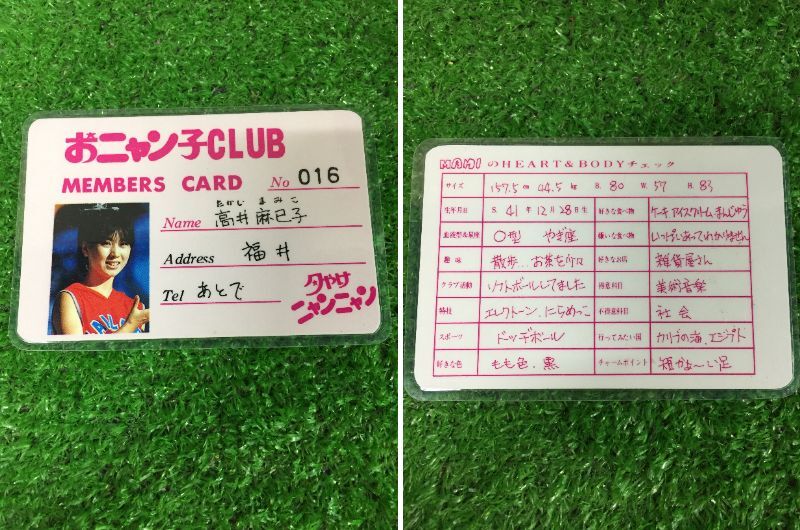 おニャン子CLUB
MEMBERS CARD No 016
たかい まみこ
Name 高井麻巳子
Address 福井
Tel あとで
夕やけ
ニャンニャン
MAMIのHEART&BODYチェック
サイズ 157.5cm 44.5kg B.80 W.57 H.83
生年月日 S.41年12月28日生 好きな食べ物 ケーキ アイスクリーム まんじゅう
血液型&星座 O型 やぎ座 嫌いな食べ物 いっぱいあってわかりません
趣味 散歩…お茶を 好きなお店 雑貨屋さん
クラブ活動 ソフトボールしてました 得意科目 美術音楽
特技 エレクトーン、にらめっこ 不得意科目 社会
スポーツ ドッヂボール 行ってみたい国 カリブの海、エジプト
好きな色 もも色、黒 チャームポイント 短かよ〜い足